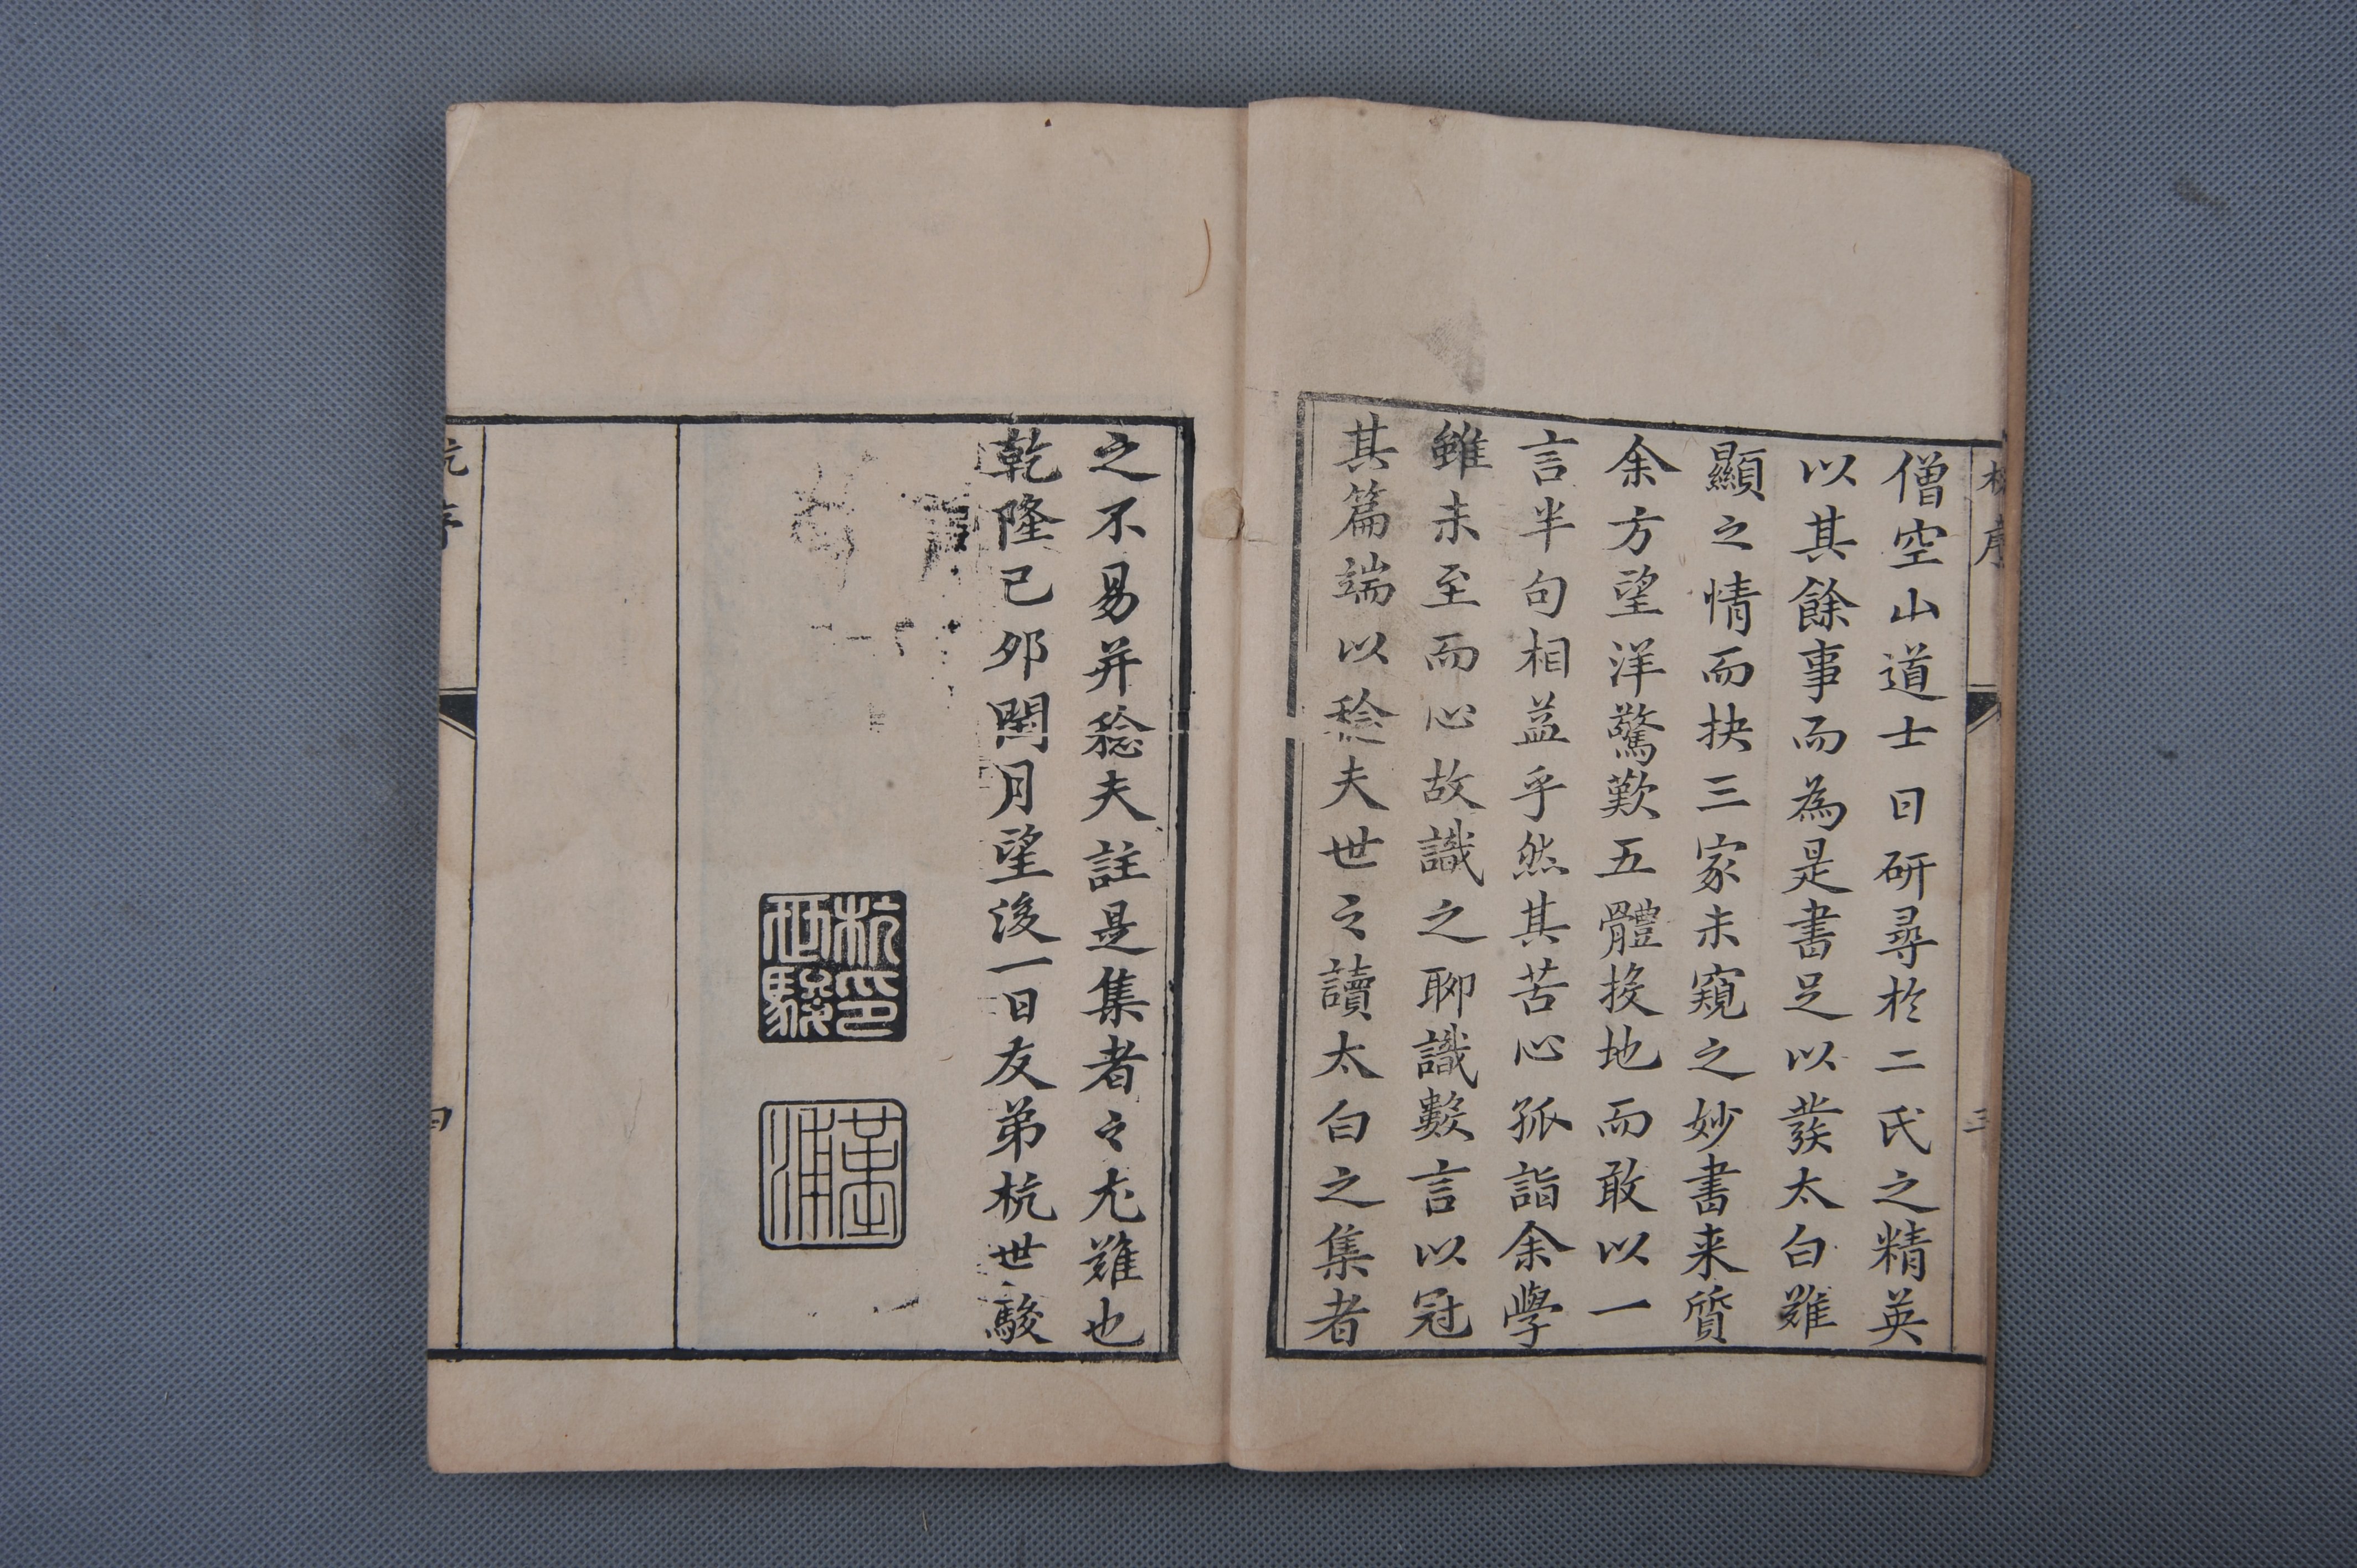 僧空山道士日研尋於二氏之精英
以其餘事而為是書足以發太白難
顯之情而抉三家未窺之妙書来質
余方望洋驚歎五體投地而敢以一
言半句相益乎然其苦心孤詣余學
雖未至而心故識之聊識數言以冠
其篇端以稔夫世之讀太白之集者
之不易并稔夫註是集者之尤難也
乾隆己夘閏月望後一日友弟杭世駿
杭世駿印
堇浦
杭序
三
杭序
四